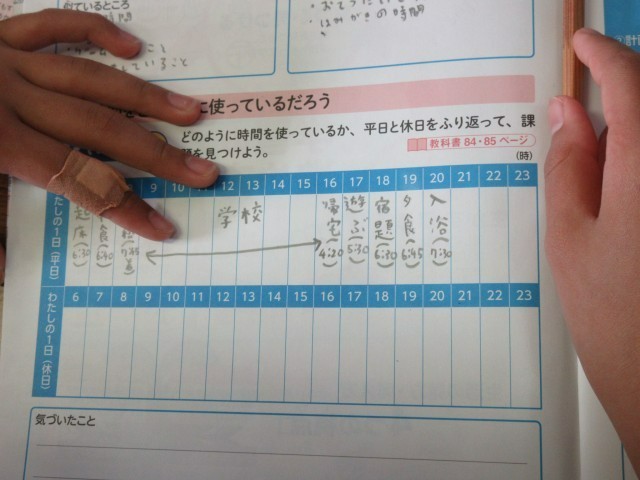 似ているところ
こと
していること
・はみがきの時間
に使っているだろう
どのように時間を使っているか、平日と休日をふり返って、課
題を見つけよう。
教科書 84・85 ページ
(時)
9 10 11 12 13 14 15 16 17 18 19 20 21 22 23
わたしの1日(平日)
起床(6:30)
食(6:40)
学校
帰宅(4:20)
遊ぶ(5:30)
宿題(6:30)
夕食(6:45)
入浴(7:30)
6 7 8 9 10 11 12 13 14 15 16 17 18 19 20 21 22 23
わたしの1日(休日)
気づいたこと